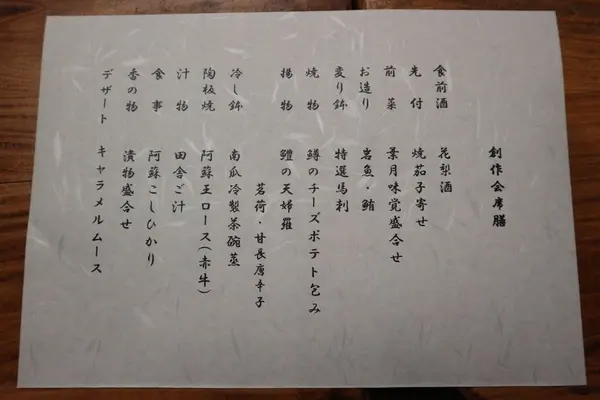 創作会席膳
食前酒 花梨酒
先付 焼茄子寄せ
前菜 葉月味覚盛合せ
お造り 岩魚・鮪
変り鉢 特選馬刺
焼物 鱒のチーズポテト包み
揚物 鱧の天婦羅
茗荷・甘長唐辛子
冷し鉢 南瓜冷製茶碗蒸
陶板焼 阿蘇王ロース(赤牛)
汁物 田舎ご汁
食事 阿蘇こしひかり
香の物 漬物盛合せ
デザート キャラメルムース